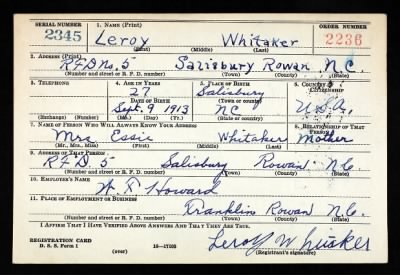 SERIAL NUMBER 1. NAME (Print) ORDER NUMBER
2345 Leroy Whitaker 2236
(First) (Middle) (Last)
2. ADDRESS (Print)
RFD No. 5 Salisbury Rowan N.C.
(Number and street or R. F. D. number) (Town) (County) (State)
3. TELEPHONE 4. AGE IN YEARS 5. PLACE OF BIRTH 6. COUNTRY OF CITIZENSHIP
27 Salisbury
DATE OF BIRTH (Town or county)
Sept. 9 1913 NC U.S.A.
(Exchange) (Number) (Mo.) (Day) (Yr.) (State or country)
7. NAME OF PERSON WHO WILL ALWAYS KNOW YOUR ADDRESS 8. RELATIONSHIP OF THAT PERSON
Mrs Essie Whitaker Mother
(Mr., Mrs., Miss) (First) (Middle) (Last)
9. ADDRESS OF THAT PERSON
RFD. 5 Salisbury Rowan N.C.
(Number and street or R. F. D. number) (Town) (County) (State)
10. EMPLOYER'S NAME
Howard
11. PLACE OF EMPLOYMENT OR BUSINESS
Franklin Rowan N.C.
(Number and street or R. F. D. number) (Town) (County) (State)
I AFFIRM THAT I HAVE VERIFIED ABOVE ANSWERS AND THAT THEY ARE TRUE.
REGISTRATION CARD
D. S. S. Form 1 (over) 16-17105 Leroy Whitsker
(Registrant's signature)